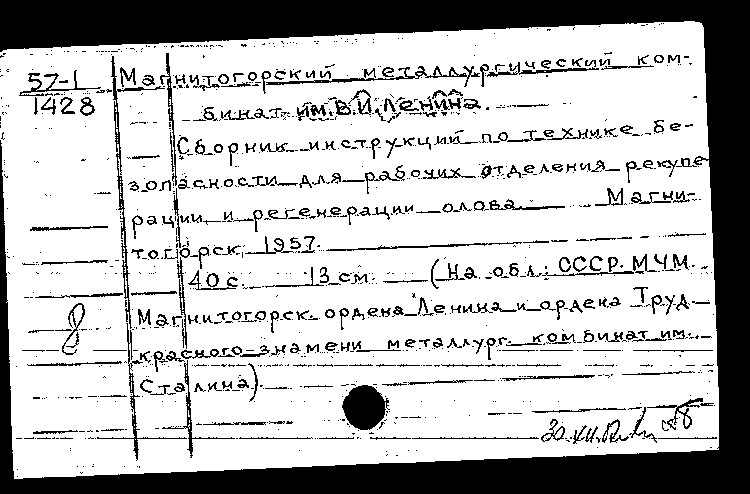 57-1 Магнитогорский металлургический ком-
1428 бинат им. В.И. Ленина.
Сборник инструкций по технике бе-
зопасности для рабочих отделения рекупе-
рации и регенерации олова. Магни-
тогорск, 1957.
40 с. 13 см. (На обл.: СССР. МЧМ.
8 Магнитогорск. ордена Ленина и ордена Труд.
красного знамени металлург. комбинат им.
Сталина)
30.XII.